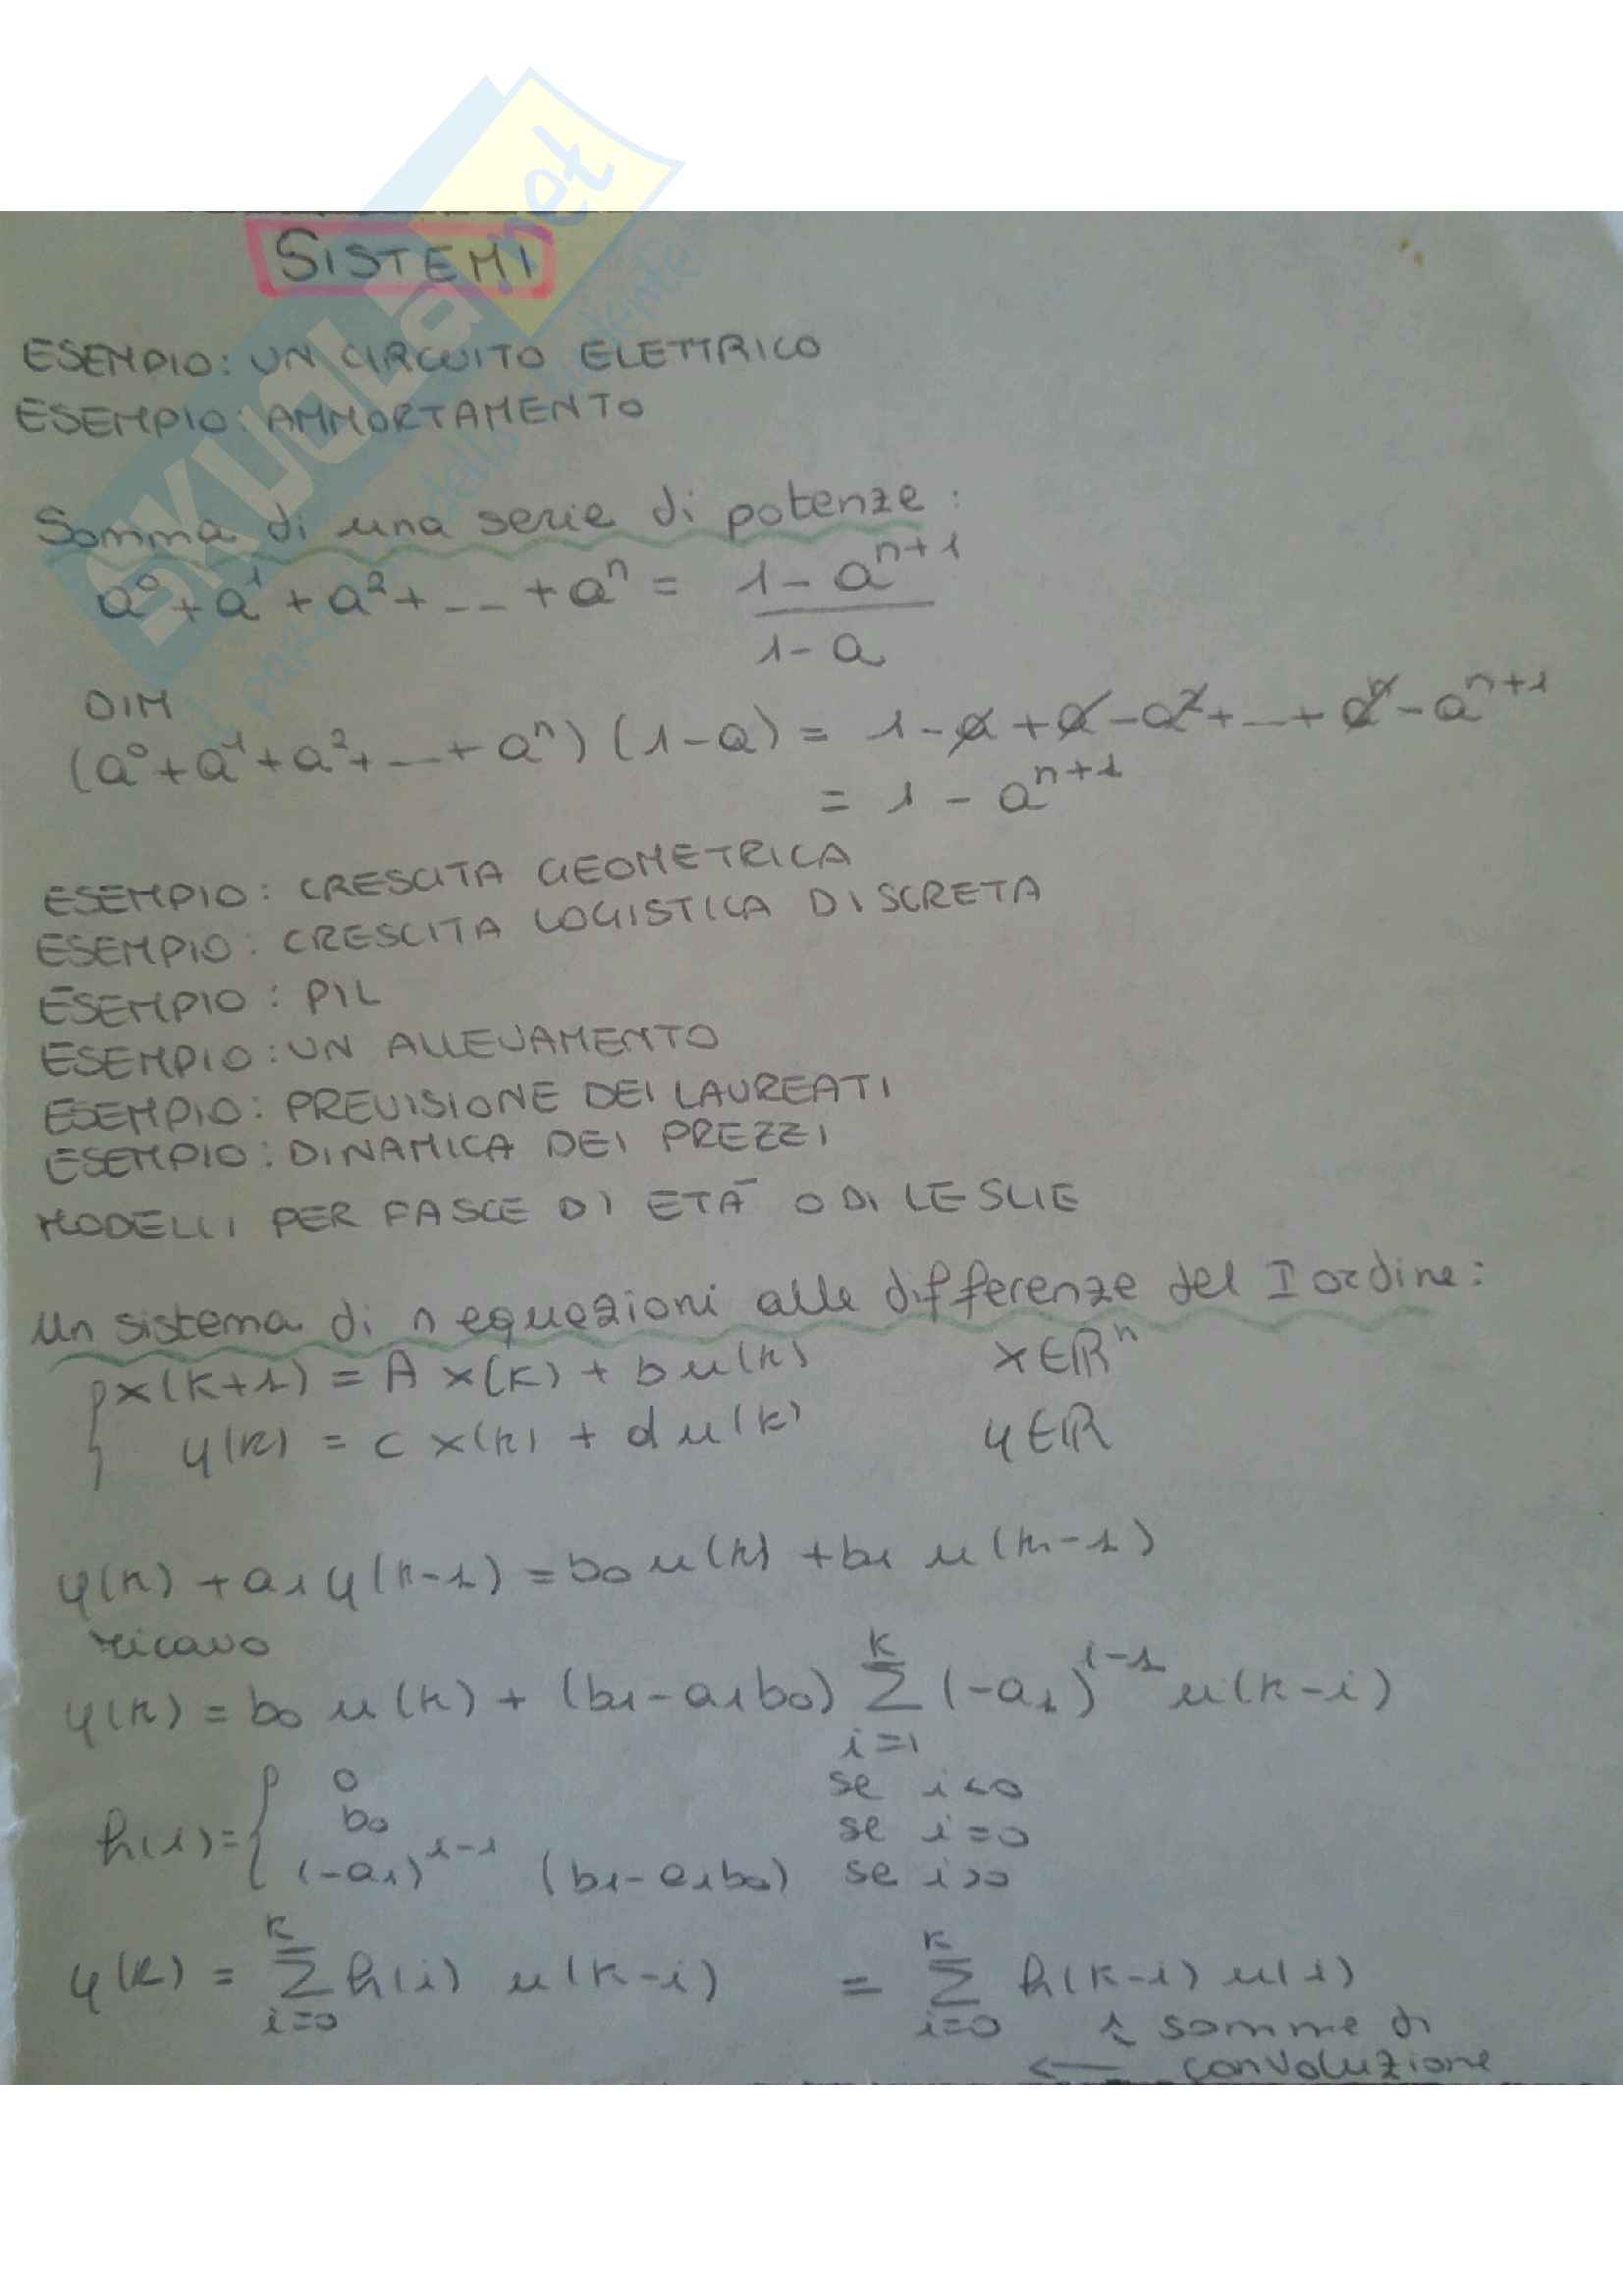 SKUOLA.net
SISTEMI
ESEMPIO: UN CIRCUITO ELETTRICO
ESEMPIO: AMMORTAMENTO
Somma di una serie di potenze:
a⁰ + a¹ + a² + ... + aⁿ = (1 - aⁿ⁺¹) / (1 - a)
DIM
(a⁰ + a¹ + a² + ... + aⁿ) (1 - a) = 1 - a + a - a² + ... + aⁿ - aⁿ⁺¹
= 1 - aⁿ⁺¹
ESEMPIO: CRESCITA GEOMETRICA
ESEMPIO: CRESCITA LOGISTICA DISCRETA
ESEMPIO: PIL
ESEMPIO: UN ALLEVAMENTO
ESEMPIO: PREVISIONE DEI LAUREATI
ESEMPIO: DINAMICA DEI PREZZI
MODELLI PER FASCE DI ETÀ O DI LESLIE
Un sistema di n equazioni alle differenze del I ordine:
{ x(k+1) = A x(k) + b u(k) x ∈ ℝⁿ
y(k) = c x(k) + d u(k) y ∈ ℝ
y(k) + a₁ y(k-1) = b₀ u(k) + b₁ u(k-1)
ricavo
y(k) = b₀ u(k) + (b₁ - a₁b₀) Σ_{i=1}^{k} (-a₁)^{i-1} u(k-i)
h(i) = { 0 se i<0
b₀ se i=0
(-a₁)^{i-1} (b₁ - a₁b₀) se i>0
y(k) = Σ_{i=0}^{k} h(i) u(k-i) = Σ_{i=0}^{k} h(k-i) u(i)
↑ somme di
← convoluzione